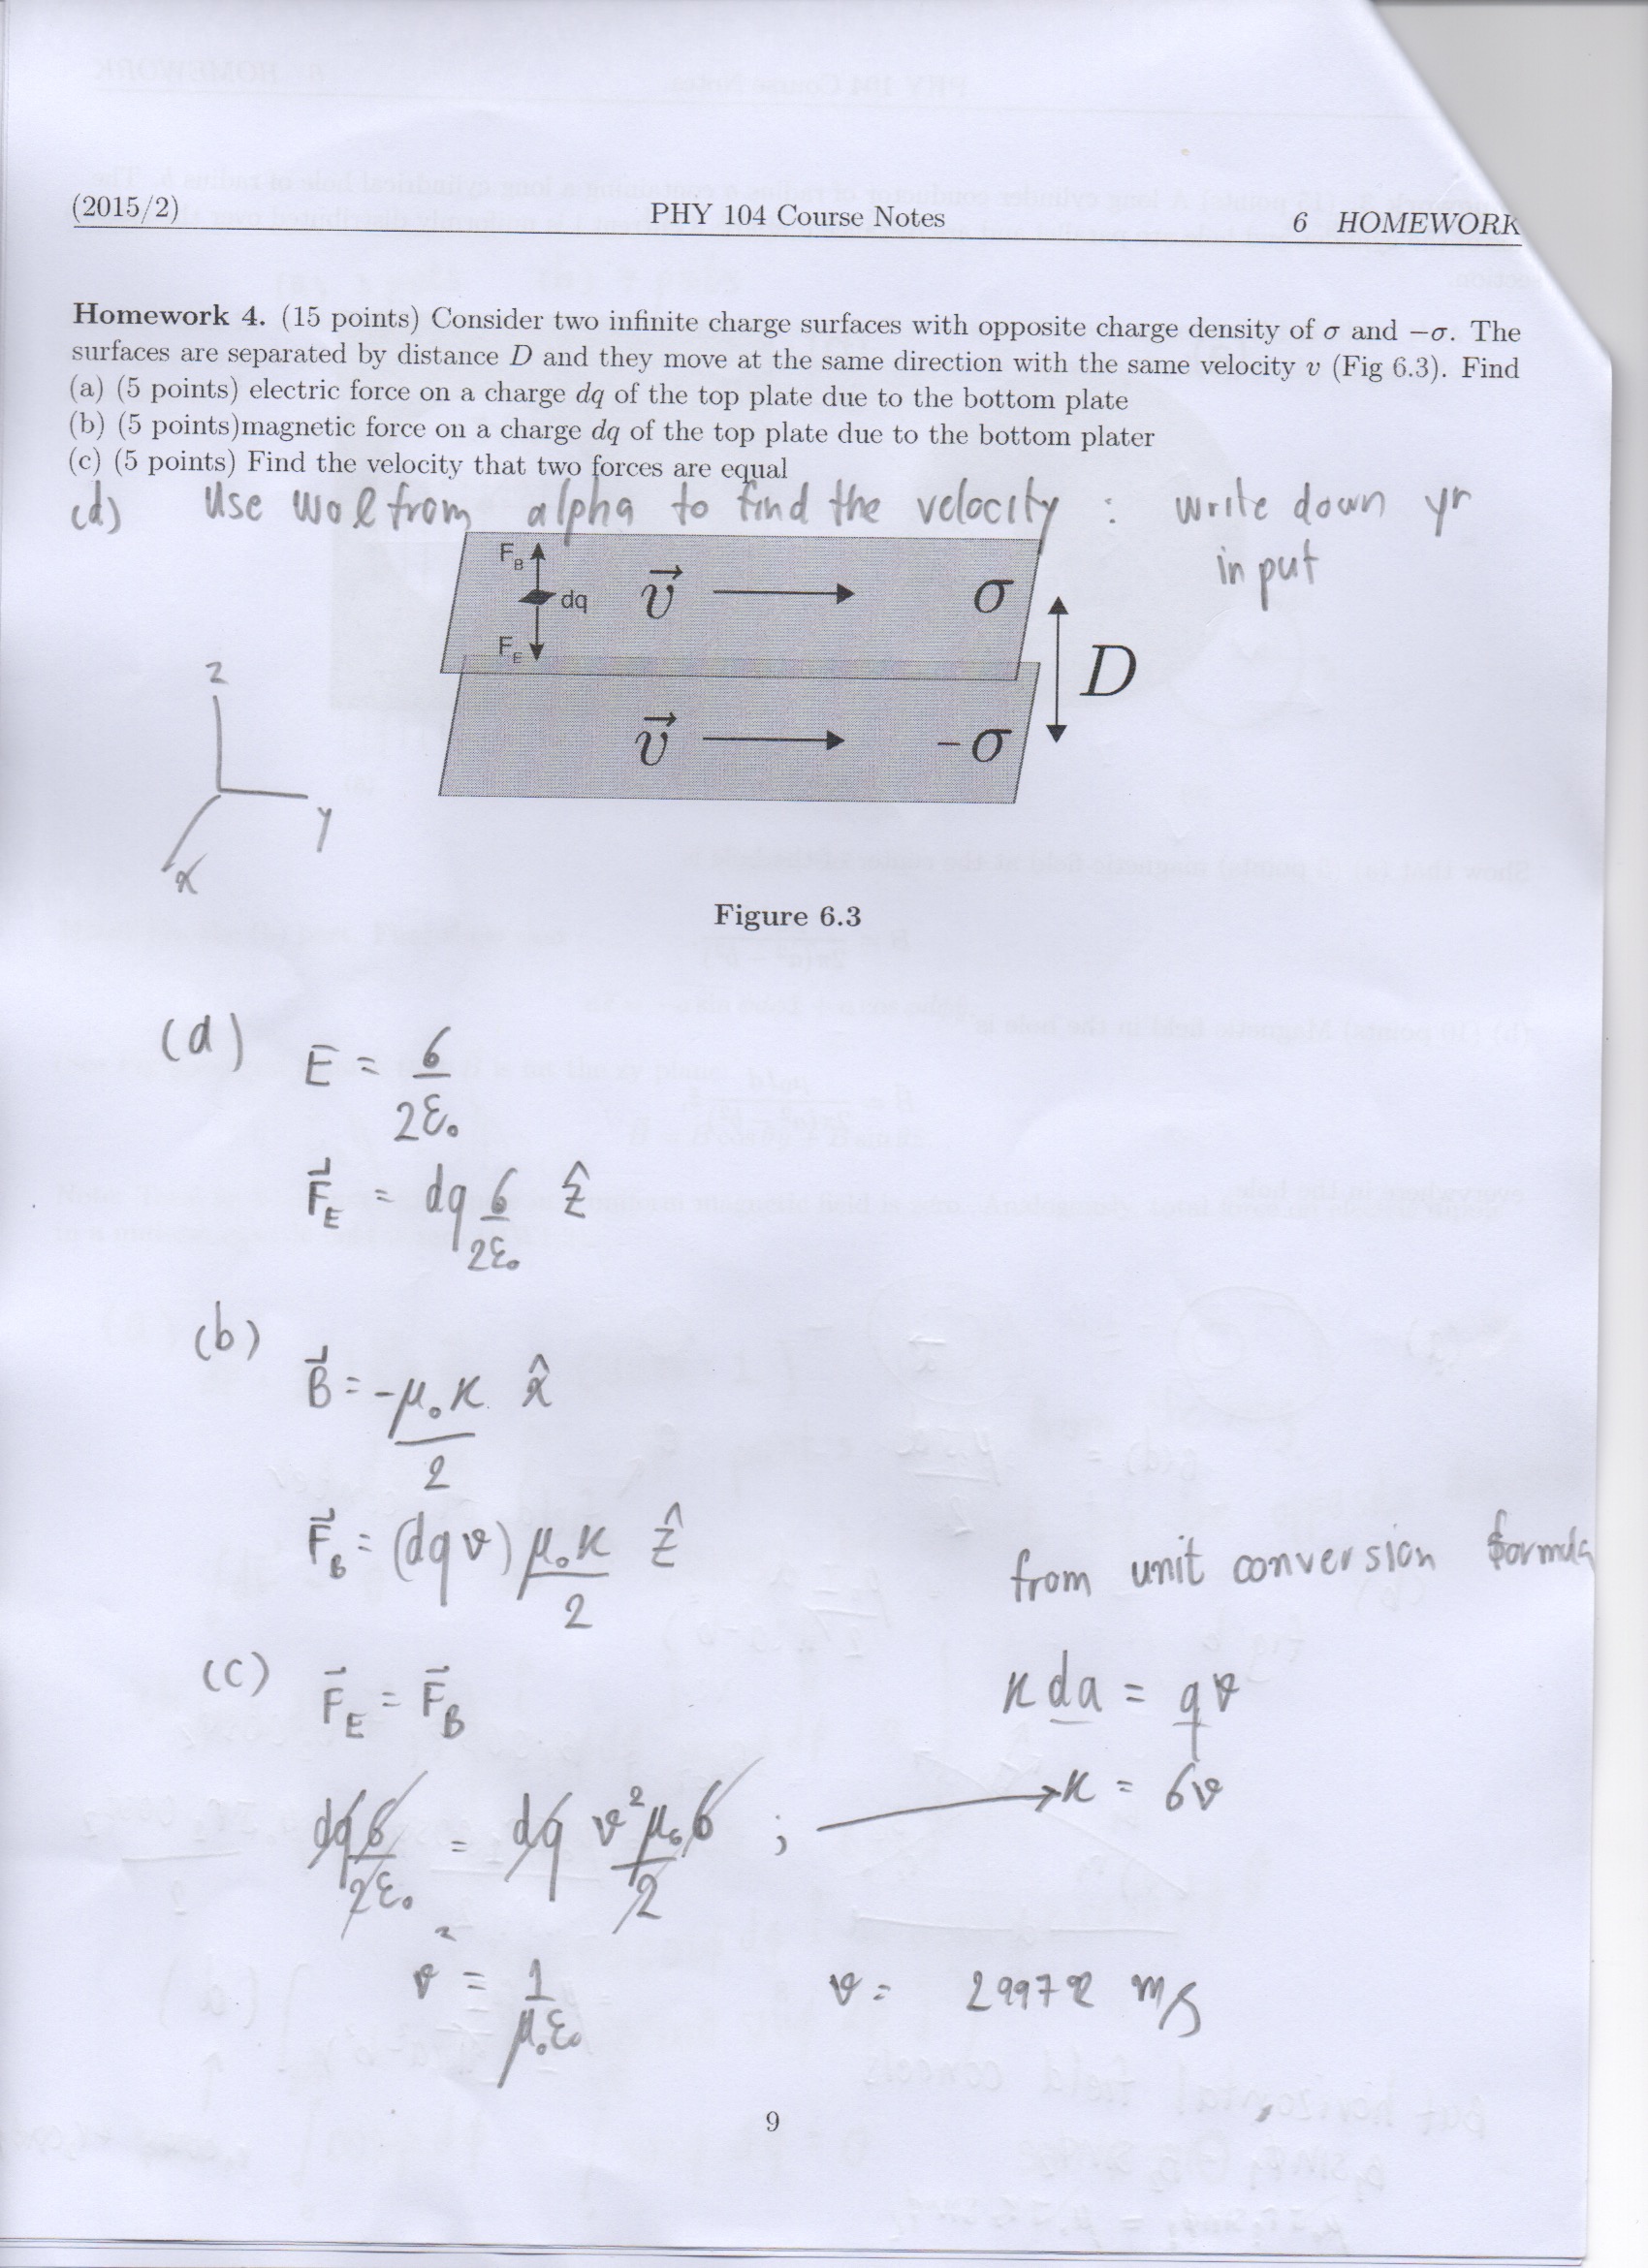 (2015/2) PHY 104 Course Notes 6 HOMEWORK
Homework 4. (15 points) Consider two infinite charge surfaces with opposite charge density of σ and −σ. The
surfaces are separated by distance D and they move at the same direction with the same velocity v (Fig 6.3). Find
(a) (5 points) electric force on a charge dq of the top plate due to the bottom plate
(b) (5 points)magnetic force on a charge dq of the top plate due to the bottom plater
(c) (5 points) Find the velocity that two forces are equal
(d) Use wolfrom alpha to find the velocity : write down yr
input
F_B
dq v⃗ σ
F_E
D
v⃗ -σ
z
y
x
Figure 6.3
(a) E = σ/2ε₀
F⃗_E = dq σ/2ε₀ ẑ
(b) B⃗ = -μ₀K/2 x̂
F⃗_B = (dq v) μ₀K/2 ẑ
from unit conversion formula
(c) F⃗_E = F⃗_B
K da = q v
K = σv
dq σ/2ε₀ = dq v² μ₀σ/2 ;
v² = 1/μ₀ε₀ v =
m/s
9